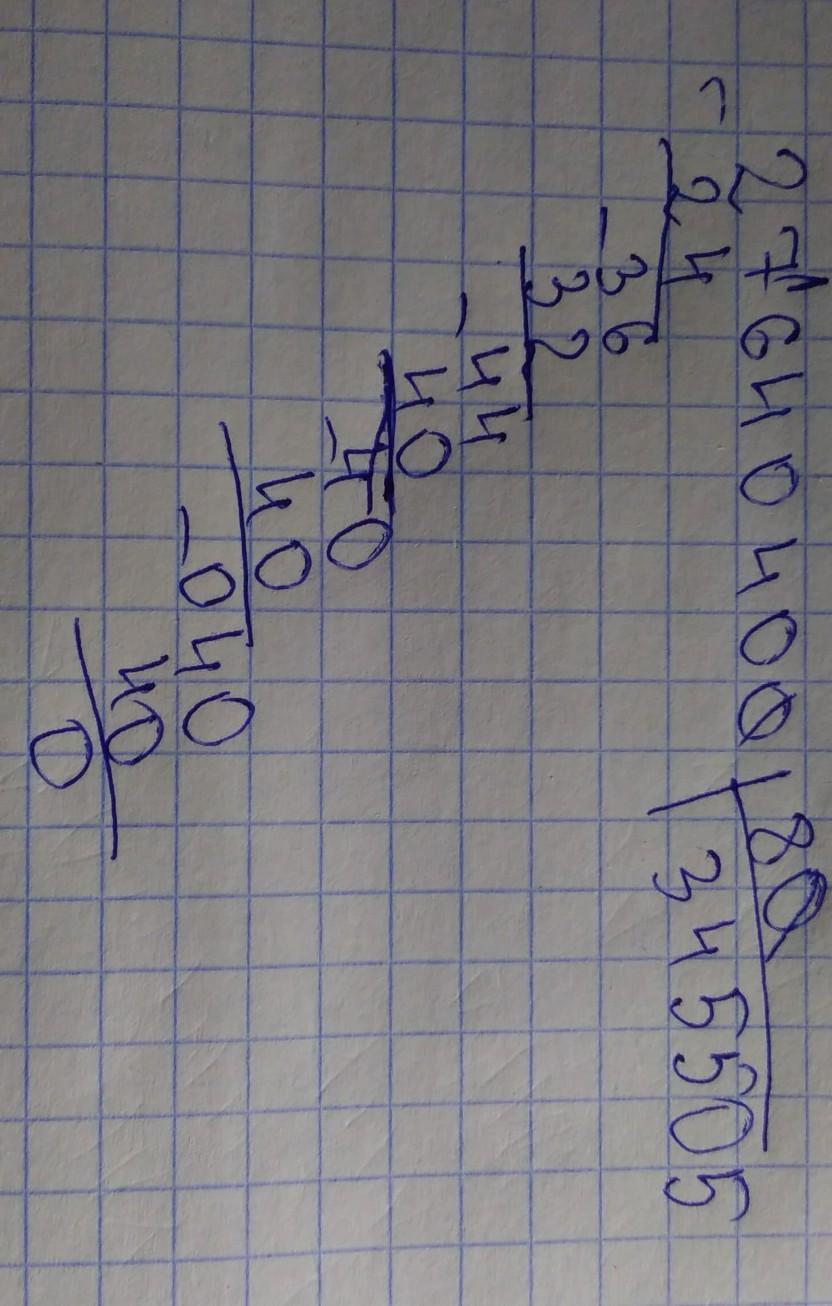 - 27640400 | 80
24 345505
- 36
32
- 44
40
- 40
40
- 040
40
0